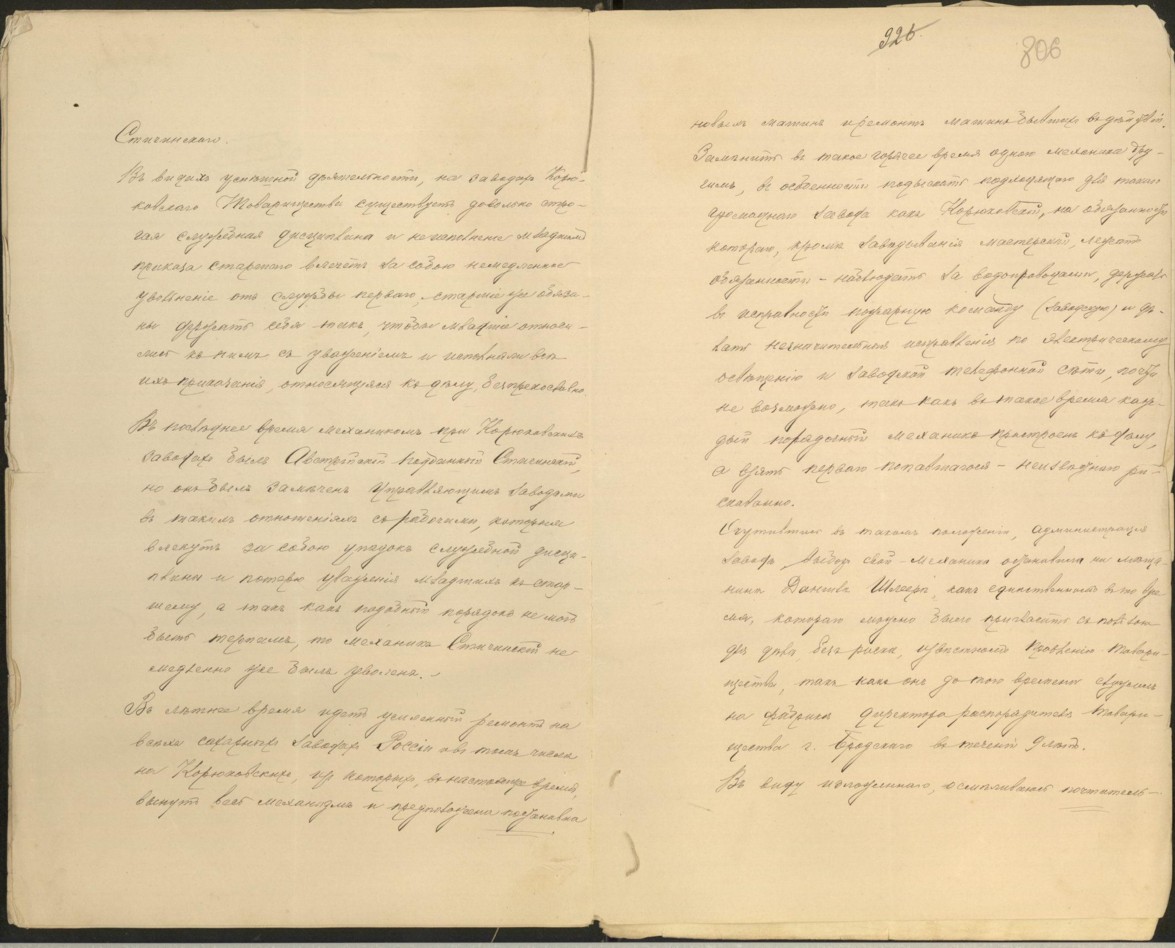 Стичинскаго.
Въ видахъ успѣшной дѣятельности, на заводахъ Корю-
ковскаго Товарищества существуетъ довольно стро-
гая служебная дисциплина и неисполненіе младшимъ
приказа старшаго влечетъ за собою немедленное
увольненіе отъ службы перваго, старшіе же обяза-
ны держать себя такъ, чтобы младшіе относи-
лись къ нимъ съ уваженіемъ и исполняли всѣ
ихъ приказанія, относящіяся къ дѣлу, безпрекословно.
Въ послѣднее время механикомъ при Корюковскихъ
заводахъ былъ Австрійскій подданный Стичинскій,
но онъ былъ замѣченъ Управляющимъ заводами
въ такихъ отношеніяхъ съ рабочими, которыя
влекутъ за собою упадокъ служебной дисци-
плины и потерю уваженія младшихъ къ стар-
шему, а такъ какъ подобный порядокъ не могъ
быть терпимъ, то механикъ Стичинскій не-
медленно уже былъ уволенъ.
Въ лѣтнее время идетъ усиленный ремонтъ на
всѣхъ сахарныхъ заводахъ Россіи въ томъ числѣ
на Корюковскихъ, изъ которыхъ, въ настоящее время,
вынутъ весь механизмъ и предположена постановка
926
806
новыхъ машинъ и ремонтъ машинъ бывшихъ въ дѣйствіи.
Замѣнить въ такое горячее время одного механика дру-
гимъ, въ особенности подыскать подходящаго для такого
громаднаго завода какъ Корюковскій, на обязанности
котораго, кромѣ завѣдыванія мастерской, лежитъ
обязанность - наблюдать за водопроводами, держать
въ исправности пожарную команду (заводскую) и дѣ-
лать незначительныя исправленія по электрическому
освѣщенію и заводской телефонной сѣти, почти
не возможно, такъ какъ въ такое время каж-
дый порядочный механикъ пристроенъ къ дѣлу,
а взять перваго попавшагося - неизбѣжно ри-
скованно.
Очутившись въ такомъ положеніи, администрація
завода выборъ свой механика остановила на мѣща-
нинѣ Шлеерѣ, какъ единственномъ въ то вре-
мя, котораго можно было пригласить съ пользою
для дѣла безъ риска, извѣстномъ Правленію Товари-
щества, такъ какъ онъ до того времени служилъ
на фабрикѣ Директора распорядителя Товари-
щества г. Бродскаго въ теченіи 9 лѣтъ.
Въ виду изложеннаго, осмѣливаюсь почтитель-